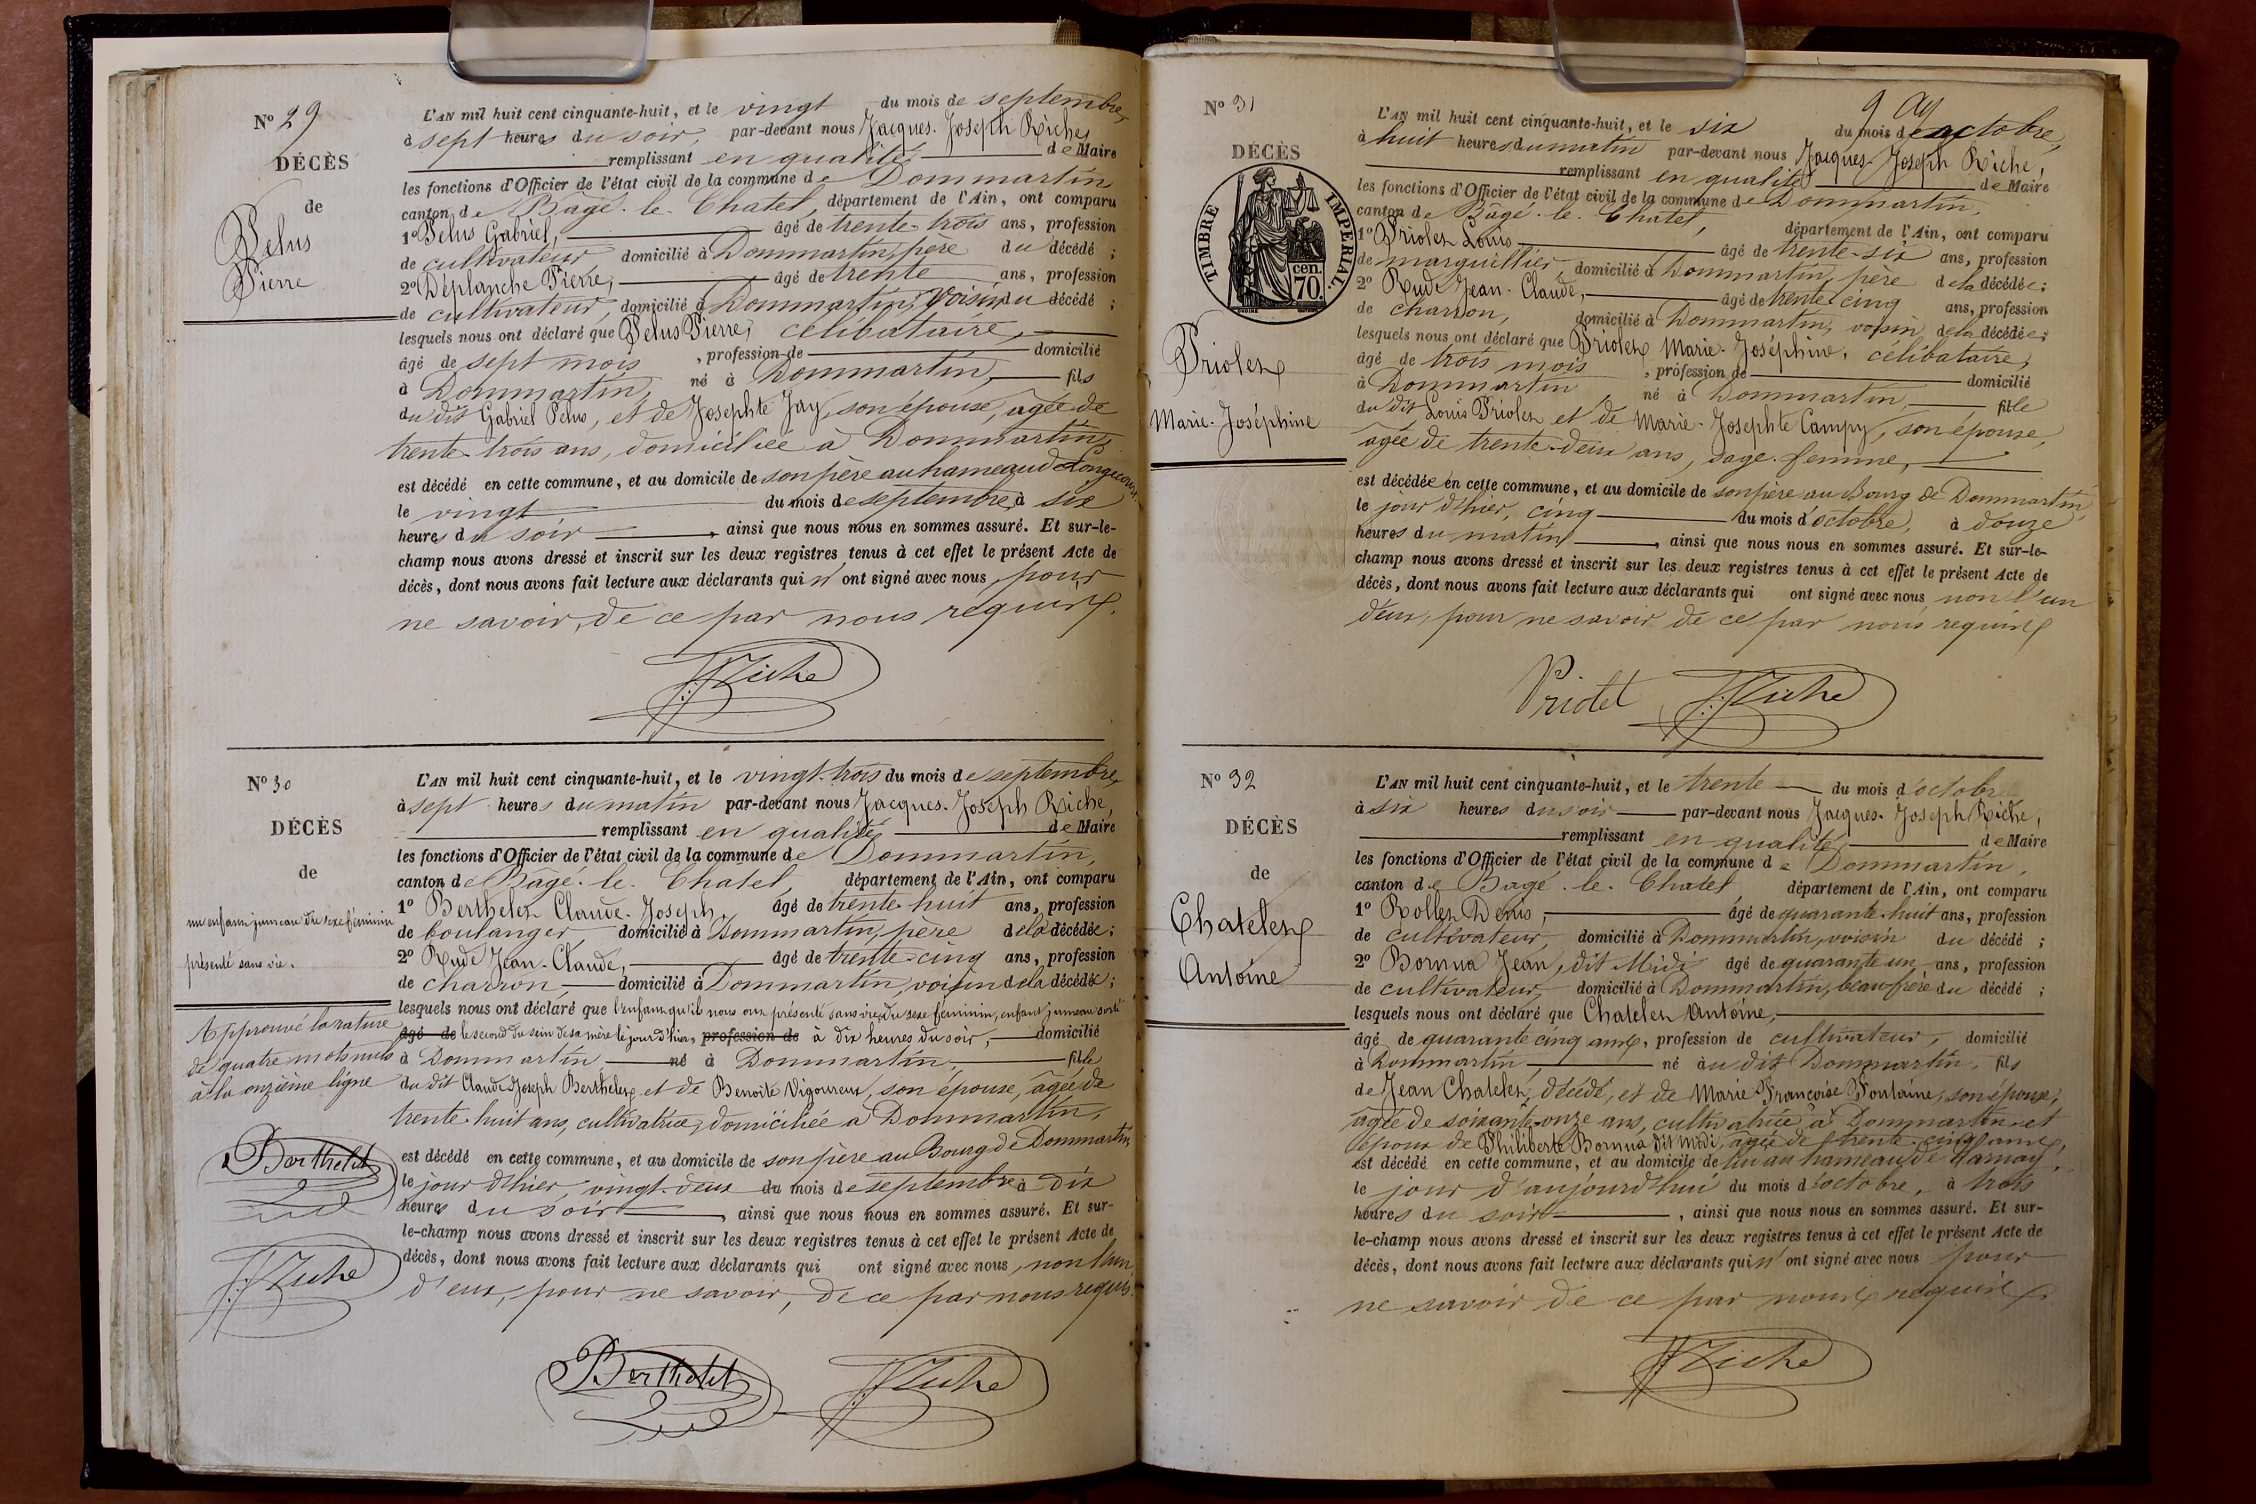 Nº 29
DÉCÈS
de
Pelus
Pierre
L'AN mil huit cent cinquante-huit, et le vingt du mois de septembre,
à sept heures du soir, par-devant nous Jacques-Joseph Riche,
remplissant en qualité de Maire
les fonctions d'Officier de l'état civil de la commune de Dommartin
canton de Bagé-le-Chatel, département de l'Ain, ont comparu
1º Pelus Gabriel, âgé de trente-trois ans, profession
de cultivateur domicilié à Dommartin, père du décédé ;
2º Déplanche Pierre, âgé de trente ans, profession
de cultivateur, domicilié à Dommartin, voisin du décédé ;
lesquels nous ont déclaré que Pelus Pierre, célibataire,
âgé de sept mois , profession de domicilié
à Dommartin, né à Dommartin, fils
du dit Gabriel Pelus, et de Josephte Jay, son épouse, âgée de
trente-trois ans, domiciliée à Dommartin,
est décédé en cette commune, et au domicile de son père au hameau de Longecour,
le vingt du mois de septembre, à six
heures du soir , ainsi que nous nous en sommes assuré. Et sur-le-
champ nous avons dressé et inscrit sur les deux registres tenus à cet effet le présent Acte de
décès, dont nous avons fait lecture aux déclarants qui n'ont signé avec nous, pour
ne savoir, de ce par nous requis.
JJRiche
Nº 30
DÉCÈS
de
un enfant jumeau du sexe féminin
présenté sans vie.
Approuvé la rature
de quatre mots nuls
à la onzième ligne
Berthelet
JJRiche
L'AN mil huit cent cinquante-huit, et le vingt-trois du mois de septembre,
à sept heures du matin par-devant nous Jacques-Joseph Riche,
remplissant en qualité de Maire
les fonctions d'Officier de l'état civil de la commune de Dommartin,
canton de Bâgé-le-Chatel, département de l'Ain, ont comparu
1º Berthelet Claude-Joseph, âgé de trente-huit ans, profession
de boulanger domicilié à Dommartin, père de la décédée ;
2º Rude Jean-Claude, âgé de trente-cinq ans, profession
de charron, domicilié à Dommartin, voisin de la décédée ;
lesquels nous ont déclaré que l'enfant qu'ils nous ont présenté sans vie, du sexe féminin, enfant jumeau sorti
âgé de le second du sein de sa mère le jour d'hier, profession de à dix heures du soir, domicilié
à Dommartin, né à Dommartin, fille
du dit Claude Joseph Berthelet et de Benoite Vigoureux, son épouse, âgée de
trente-huit ans, cultivatrice, domiciliée à Dommartin,
est décédé en cette commune, et au domicile de son père au Bourg de Dommartin,
le jour d'hier, vingt-deux du mois de septembre à dix
heures du soir , ainsi que nous nous en sommes assuré. Et sur-
le-champ nous avons dressé et inscrit sur les deux registres tenus à cet effet le présent Acte de
décès, dont nous avons fait lecture aux déclarants qui ont signé avec nous, non l'un
d'eux, pour ne savoir, de ce par nous requis.
Berthelet JJRiche
Nº 31
DÉCÈS
TIMBRE IMPÉRIAL.
70. cen.
Priolet
Marie-Joséphine
L'AN mil huit cent cinquante-huit, et le six du mois d'octobre,
à huit heures du matin par-devant nous Jacques-Joseph Riche,
remplissant en qualité de Maire
les fonctions d'Officier de l'état civil de la commune de Dommartin,
canton de Bâgé-le-Chatel, département de l'Ain, ont comparu
1º Priolet Louis âgé de trente-six ans, profession
de marguillier, domicilié à Dommartin, père de la décédée ;
2º Rude Jean-Claude, âgé de trente-cinq ans, profession
de charron, domicilié à Dommartin, voisin de la décédée ;
lesquels nous ont déclaré que Priolet Marie-Joséphine, célibataire,
âgé de trois mois , profession de domicilié
à Dommartin né à Dommartin, fille
du dit Louis Priolet et de Marie-Josephte Campy, son épouse,
âgée de trente-deux ans, sage-femme,
est décédée en cette commune, et au domicile de son père au Bourg de Dommartin,
le jour d'hier, cinq du mois d'octobre, à douze
heures du matin , ainsi que nous nous en sommes assuré. Et sur-le-
champ nous avons dressé et inscrit sur les deux registres tenus à cet effet le présent Acte de
décès, dont nous avons fait lecture aux déclarants qui ont signé avec nous non l'un
d'eux, pour ne savoir de ce par nous requis
Priolet JJRiche
Nº 32
DÉCÈS
de
Chatelet
Antoine
L'AN mil huit cent cinquante-huit, et le trente du mois d'octobre
à six heures du soir par-devant nous Jacques-Joseph Riche,
remplissant en qualité de Maire
les fonctions d'Officier de l'état civil de la commune de Dommartin,
canton de Bagé-le-Chatel département de l'Ain, ont comparu
1º Rollet Denis, âgé de quarante-huit ans, profession
de cultivateur, domicilié à Dommartin, voisin du décédé ;
2º Bornua Jean, dit Midi âgé de quarante un ans, profession
de cultivateur, domicilié à Dommartin, beau-frère du décédé ;
lesquels nous ont déclaré que Chatelet Antoine,
âgé de quarante cinq ans, profession de cultivateur, domicilié
à Dommartin, né au dit Dommartin, fils
de Jean Chatelet, décédé, et de Marie Françoise Fontaine, son épouse,
âgée de soixante-onze ans, cultivatrice à Dommartin et
époux de Philiberte Bornua dit Midi, âgée de trente-cinq ans,
est décédé en cette commune, et au domicile de lui au hameau de
le jour d'aujourd'hui du mois d'octobre, à trois
heures du soir , ainsi que nous nous en sommes assuré. Et sur-
le-champ nous avons dressé et inscrit sur les deux registres tenus à cet effet le présent Acte de
décès, dont nous avons fait lecture aux déclarants qui n'ont signé avec nous pour
ne savoir de ce par nous requis.
JJRiche